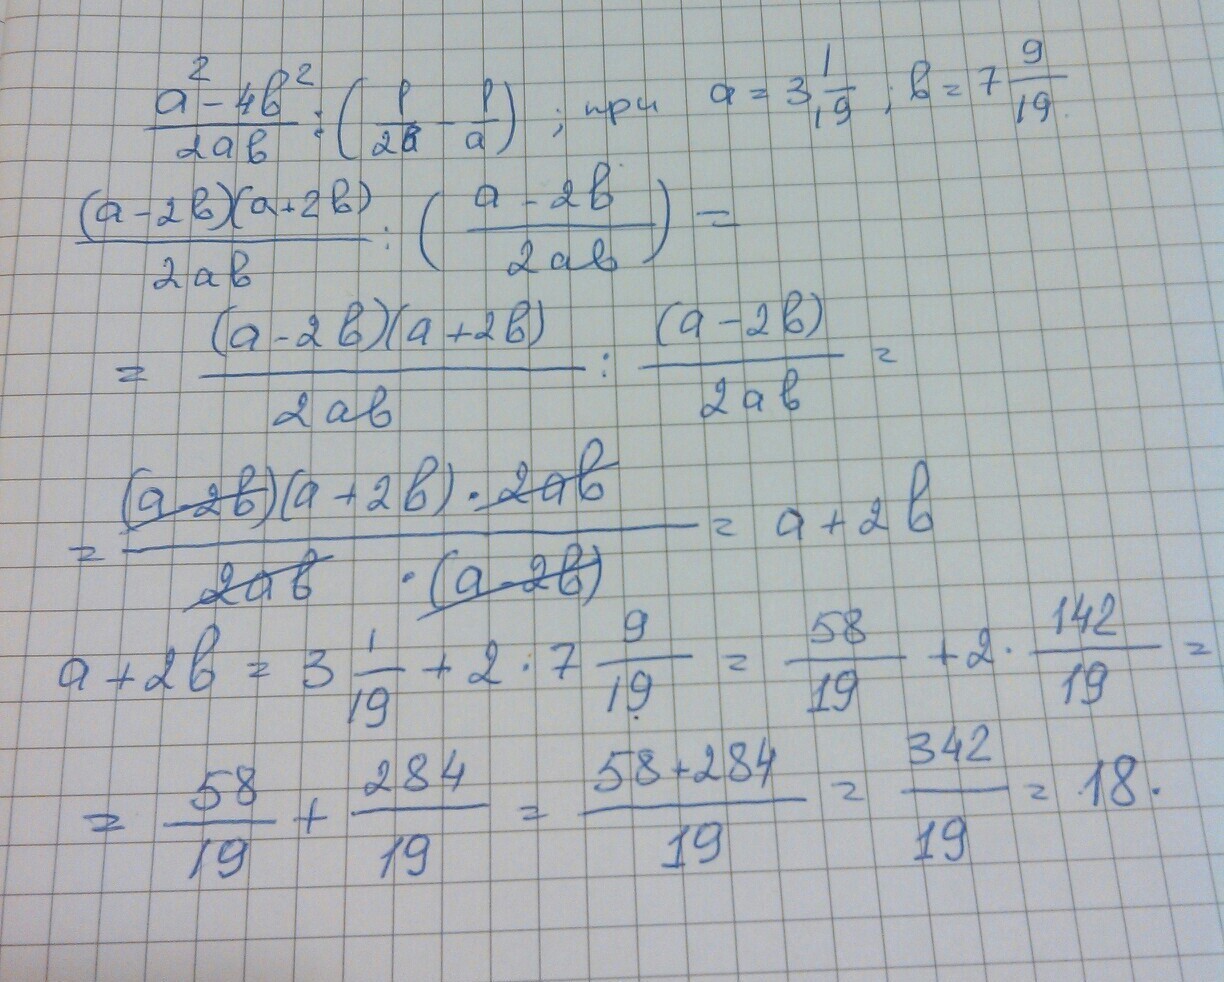 (a² - 4b²)/(2ab) : (1/(2b) - 1/a) ; при a = 3 1/19 ; b = 7 9/19.
(a - 2b)(a + 2b)/(2ab) : ((a - 2b)/(2ab)) =
= (a - 2b)(a + 2b)/(2ab) : (a - 2b)/(2ab) =
= (a - 2b)(a + 2b) · 2ab/(2ab · (a - 2b)) = a + 2b
a + 2b = 3 1/19 + 2 · 7 9/19 = 58/19 + 2 · 142/19 =
= 58/19 + 284/19 = (58 + 284)/19 = 342/19 = 18.